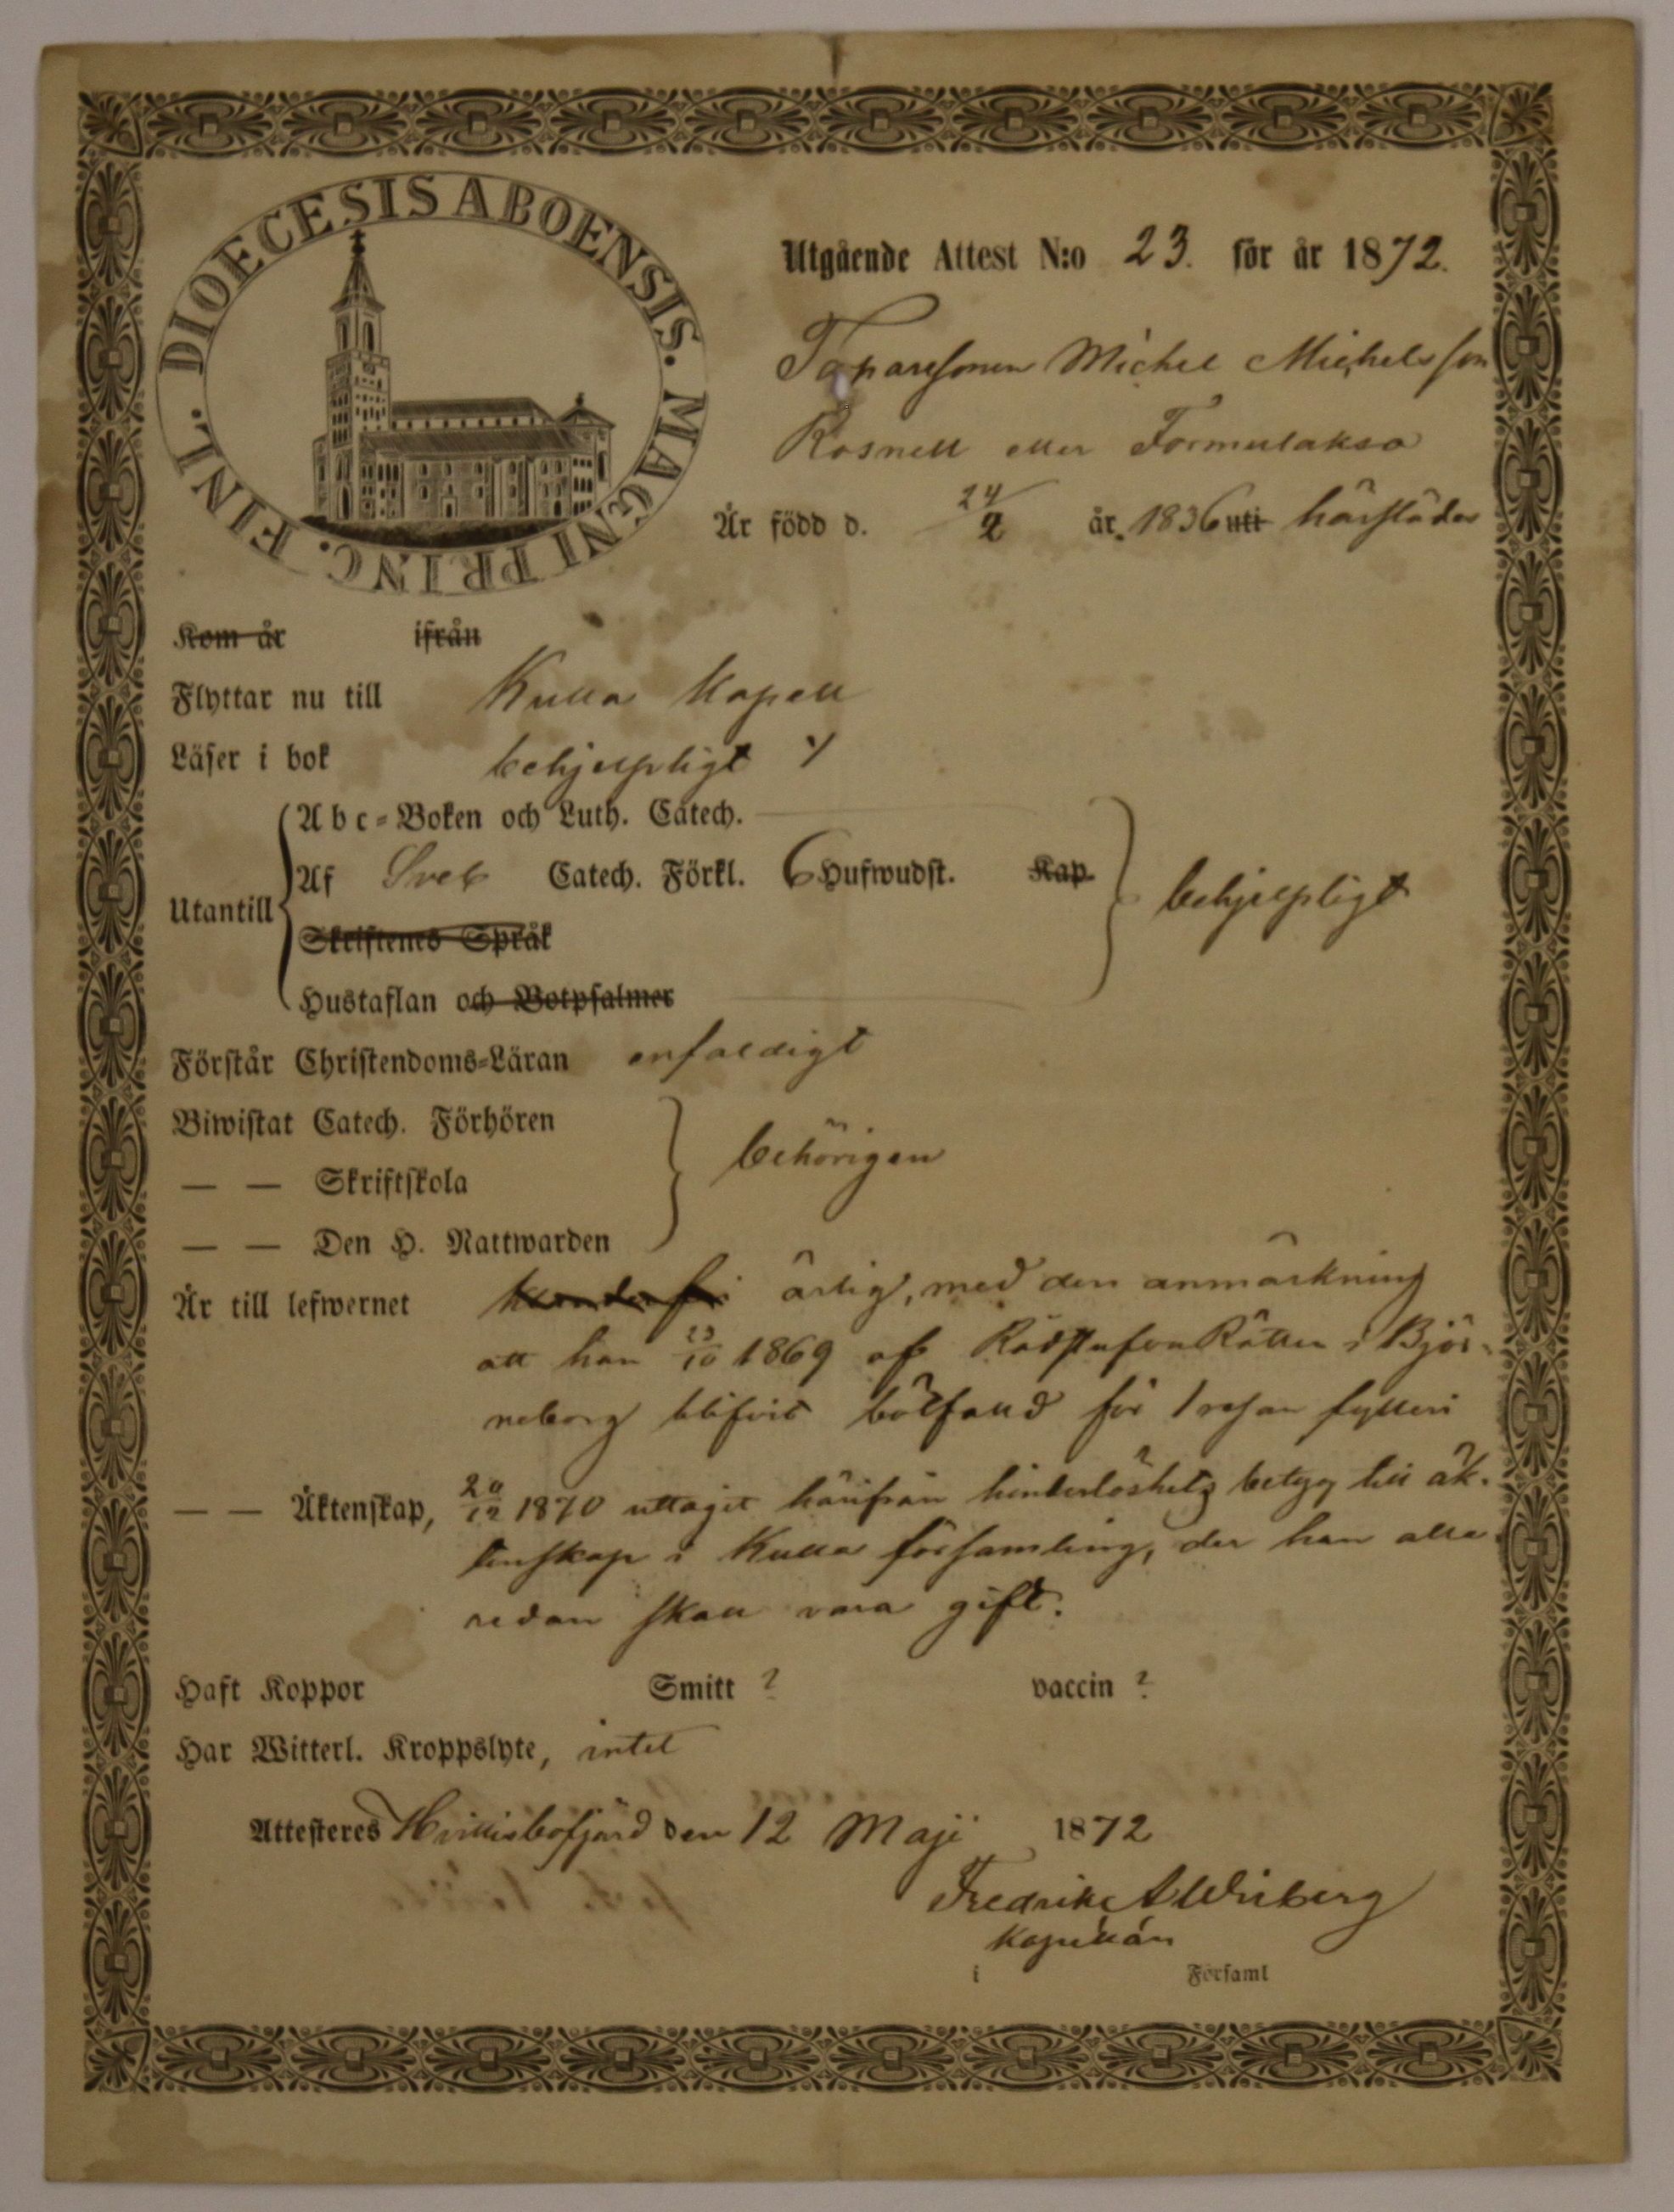 DIOECESIS ABOENSIS. MAGNI PRINC. FINL.
Utgående Attest N:o 23. för år 1872.
Torparesonen Michel Michelsson
Rosnell eller Tormulakso
Är född d. 24/2 år 1836 uti härstädes
Kom år ifrån
Flyttar nu till Kulla Kapell
Läser i bok behjelpligt
Utantill
Abc-Boken och Luth. Catech.
Af Sveb Catech. Förkl. 6 Hufwudst. Kap.
behjelpligt
Skriftenes Språk
Hustaflan och Botpsalmer
Förstår Christendoms-Läran enfaldigt
Biwistat Catech. Förhören
behörigen
— — Skriftskola
— — Den H. Nattwarden
Är till lefwernet ärlig, med den anmärkning
att han 1869 af RådstufvuRätten i Björ-
neborg blifvit bötfälld för 1 resan fylleri
— — Äktenskap, 20/12 1870 uttagit härifrån hinderlöshets betyg till äk-
tenskap i Kulla församling, der han alla
redan skall vara gift.
Haft Koppor Smitt ? vaccin ?
Har Witterl. Kroppslyte, intet
Attesteres Hvittisbofjärd den 12 Maji 1872
Fredrik A Wiberg
Kapellán
i Församl